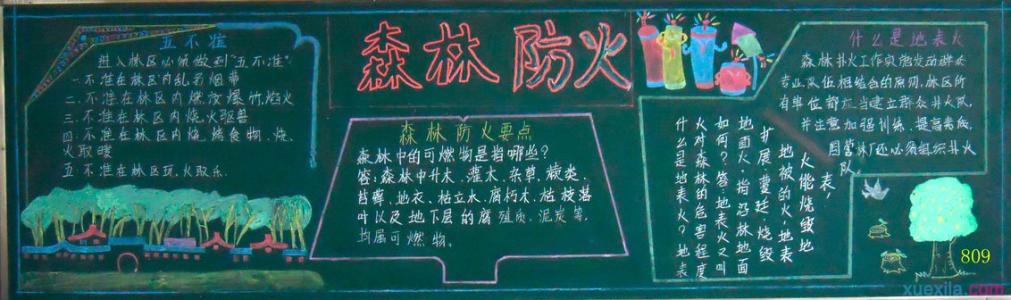 五不准
进入林区必须做到“五不准”
一.不准在林区内乱丢烟蒂
二.不准在林区内燃放爆竹、焰火
三.不准在林区内烧火驱兽
四.不准在林区内烧、烤食物、烧
火取暖
五.不准在林区玩火取乐.
森林防火
森林防火要点
森林中的可燃物是指哪些?
答:森林中乔木、灌木、杂草、蕨类、
苔藓、地衣、枯立木、腐朽木、枯枝落
叶以及地下层的腐殖质、泥炭等,
均属可燃物。
什么是地表火
森林扑火工作实施发动群众
专业队伍相结合的原则,林区所
有单位都应当建立群众扑火队,
并注意加强训练、提高素质,
国营林厂还必须组织扑火
队
什么是地表火?地表
火对森林的危害程度
如何?答:地表火又叫
地面火,指沿林地面
扩展蔓延,烧毁
地被的火,地表
火能烧毁地
表,
809
xuexila.com